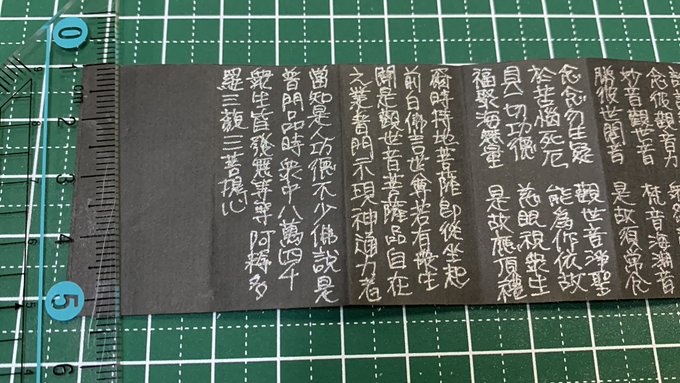 念彼觀音力
妙音觀世音 梵音海潮音
勝彼世間音 是故須常念
念念勿生疑 觀世音淨聖
於苦惱死厄 能為作依怙
具一切功德 慈眼視衆生
福聚海無量 是故應頂禮
爾時持地菩薩即從坐起
前白佛言世尊若有衆生
聞是觀世音菩薩品自在
之業普門示現神通力者
當知是人功德不少佛說是
普門品時衆中八萬四千
衆生皆發無等等阿耨多
羅三藐三菩提心
0
1
cm
2
3
4
5
6